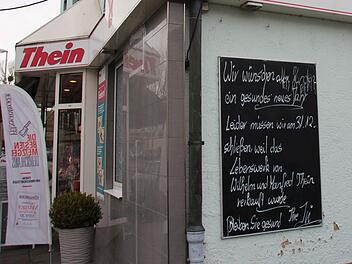 Thein
Thein
DIE
BESTEN
METZGER
Wir wünschen allen Kunden
ein gesundes neues Jahr
Leider müssen wir am 31.12.
schließen weil das
Lebenswerk von
Wilhelm und Manfred Thein
verkauft wurde
Bleiben Sie gesund